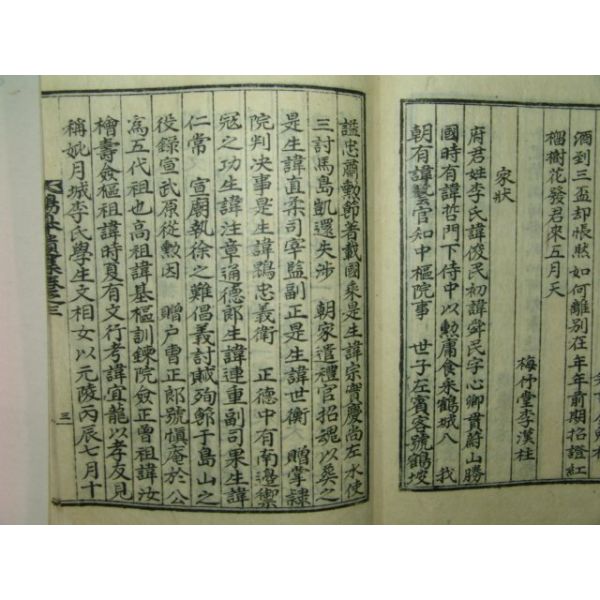 酒到三盃却悵然如何離別在年年前期招證紅
榴樹花發君來五月天
梅竹堂李漢柱
家狀
府君姓李氏諱俊民初諱舜民字心卿貫蔚山勝
國時有諱哲門下侍中以勳庸食采鶴城入 我
朝有諱藝官知中樞院事 世子左賓客號鶴坡
謚忠肅勳節著載國乘是生諱宗實慶尚左水使
三討馬島凱還失涉 朝家遣禮官招魂以葬之
是生諱直柔司宰監副正是生諱世衡 贈掌隷
院判决事是生諱鵾忠義衛 正德中有南邊禦
寇之功生諱注章通德郎生諱連重副司果生諱
仁常 宣廟執徐之難倡義討賊殉節于島山之
役錄宣武原從勳因 贈戶曹正郎號愼庵於公
爲五代祖也高祖諱基樞訓鍊院僉正曾祖諱汝
檜壽僉樞祖諱時夏有文行考諱宜龍以孝友見
稱妣月城李氏學生文相女以元陵丙辰七月十
三